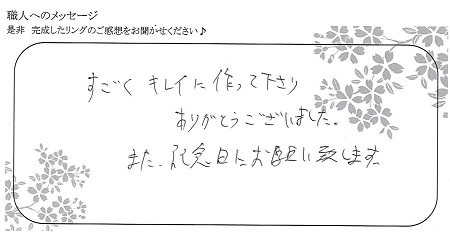 職人へのメッセージ
是非 完成したリングのご感想をお聞かせください♪
すごく キレイに 作って下さり
ありがとうございました。
また、記念日にお願い致します